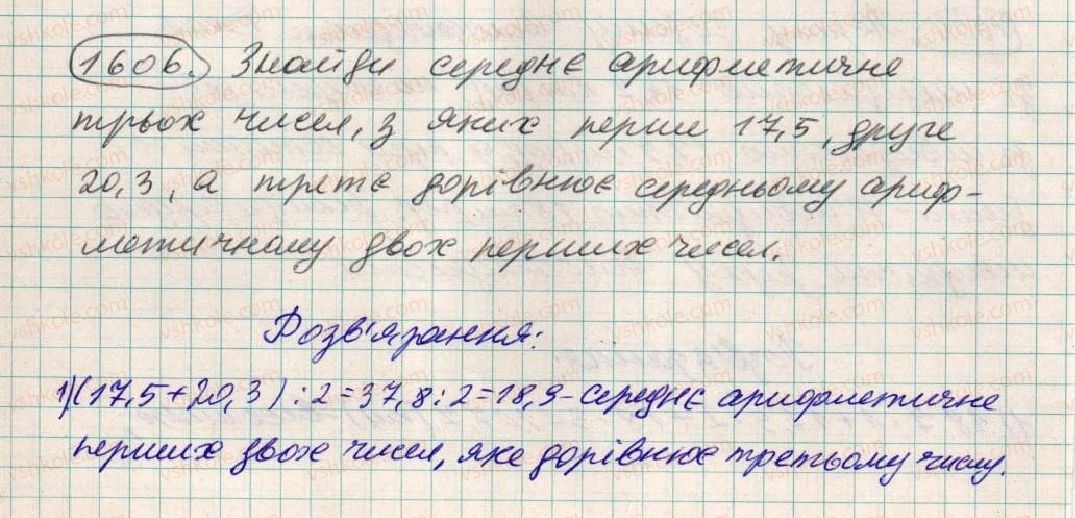 1606. Знайди середнє арифметичне
трьох чисел, з яких перше 17,5, друге
20,3, а третє дорівнює середньому ариф-
метичному двох перших чисел.
Розв'язання:
1) (17,5+20,3):2=37,8:2=18,9- середнє арифметичне
перших двох чисел, яке дорівнює третьому числу.